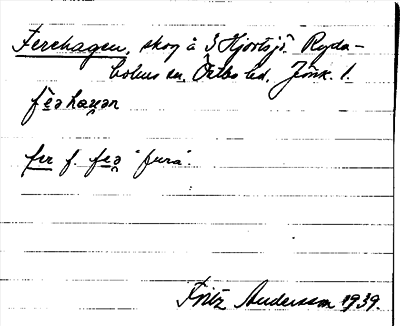 Ferehagen, skog å S Hjortsjö. Ryda-
holms sn. Östbo hd. Jönk. l.
fe̯ǝhau̯ǝn
fer f. fe̯ǝ "fura".
Fritz Andersson 1939.